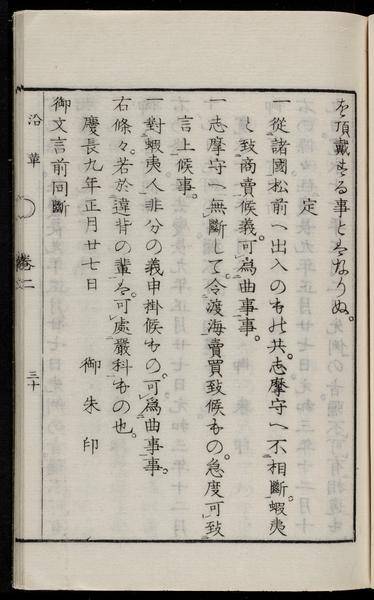 を頂戴する事とはなりぬ。
定
一從諸國松前ヘ出入のもの共。志摩守ヘ不相斷蝦夷
と致商賣候義。可爲曲事事。
一志摩守ヘ無斷して令渡海賣買致候もの。急度可致
言上候事。
一對蝦夷人非分の義申掛候もの。可爲曲事事。
右條々。若於違背の輩は。可處嚴科もの也。
慶長九年正月廿七日　御朱印
御文言前同斷
沿革
卷二
三十